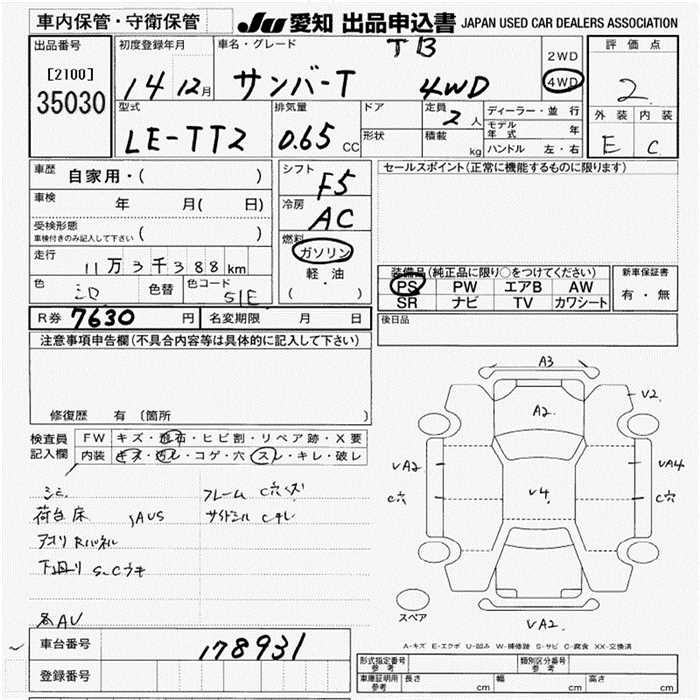 車内保管・守衛保管
JU 愛知 出品申込書 JAPAN USED CAR DEALERS ASSOCIATION
出品番号
[2100]
35030
初度登録年月
14 12月
車名・グレード
TB
サンバ-T 4WD
2WD
4WD
評価点
2
外装 内装
E C
型式
LE-TT2
排気量
0.65 CC
ドア
形状
定員
2人
積載
kg
ディーラー・並行
モデル年式 年
ハンドル 左・右
車歴
自家用・( )
車検
年 月( 日)
受検形態
車検付きのみ記入して下さい ( )
走行
11万3千388km
色
シロ
色替
色コード
51E
シフト
F5
冷房
AC
燃料
ガソリン
軽・油
( ・ )
セールスポイント(正常に機能するものに限ります)
装備品(純正品に限り○をつけてください)
PS PW エアB AW
SR ナビ TV カワシート
新車保証書
有・無
R券 7630 円
名変期限 月 日
後日品
注意事項申告欄(不具合内容等は具体的に記入して下さい)
修復歴 有(箇所 )
検査員
記入欄
FW キズ・飛石・ヒビ割・リペア跡・X要
内装 キズ・汚レ・コゲ・穴・スレ・キレ・破レ
シミ
フレーム C穴
荷台床 JAUS
下廻り S.Cウキ
各AU
A3
V2
A2
VA2
VA4
C穴
V4
C穴
スペア
VA2
A-キズ E-エクボ U-凹み W-補修跡 S-サビ C-腐食 XX-交換済
車台番号
178931
登録番号
形式指定番号
参考
類別区分番号
参考
車庫証明用
参考
長さ cm 幅 cm 高さ cm